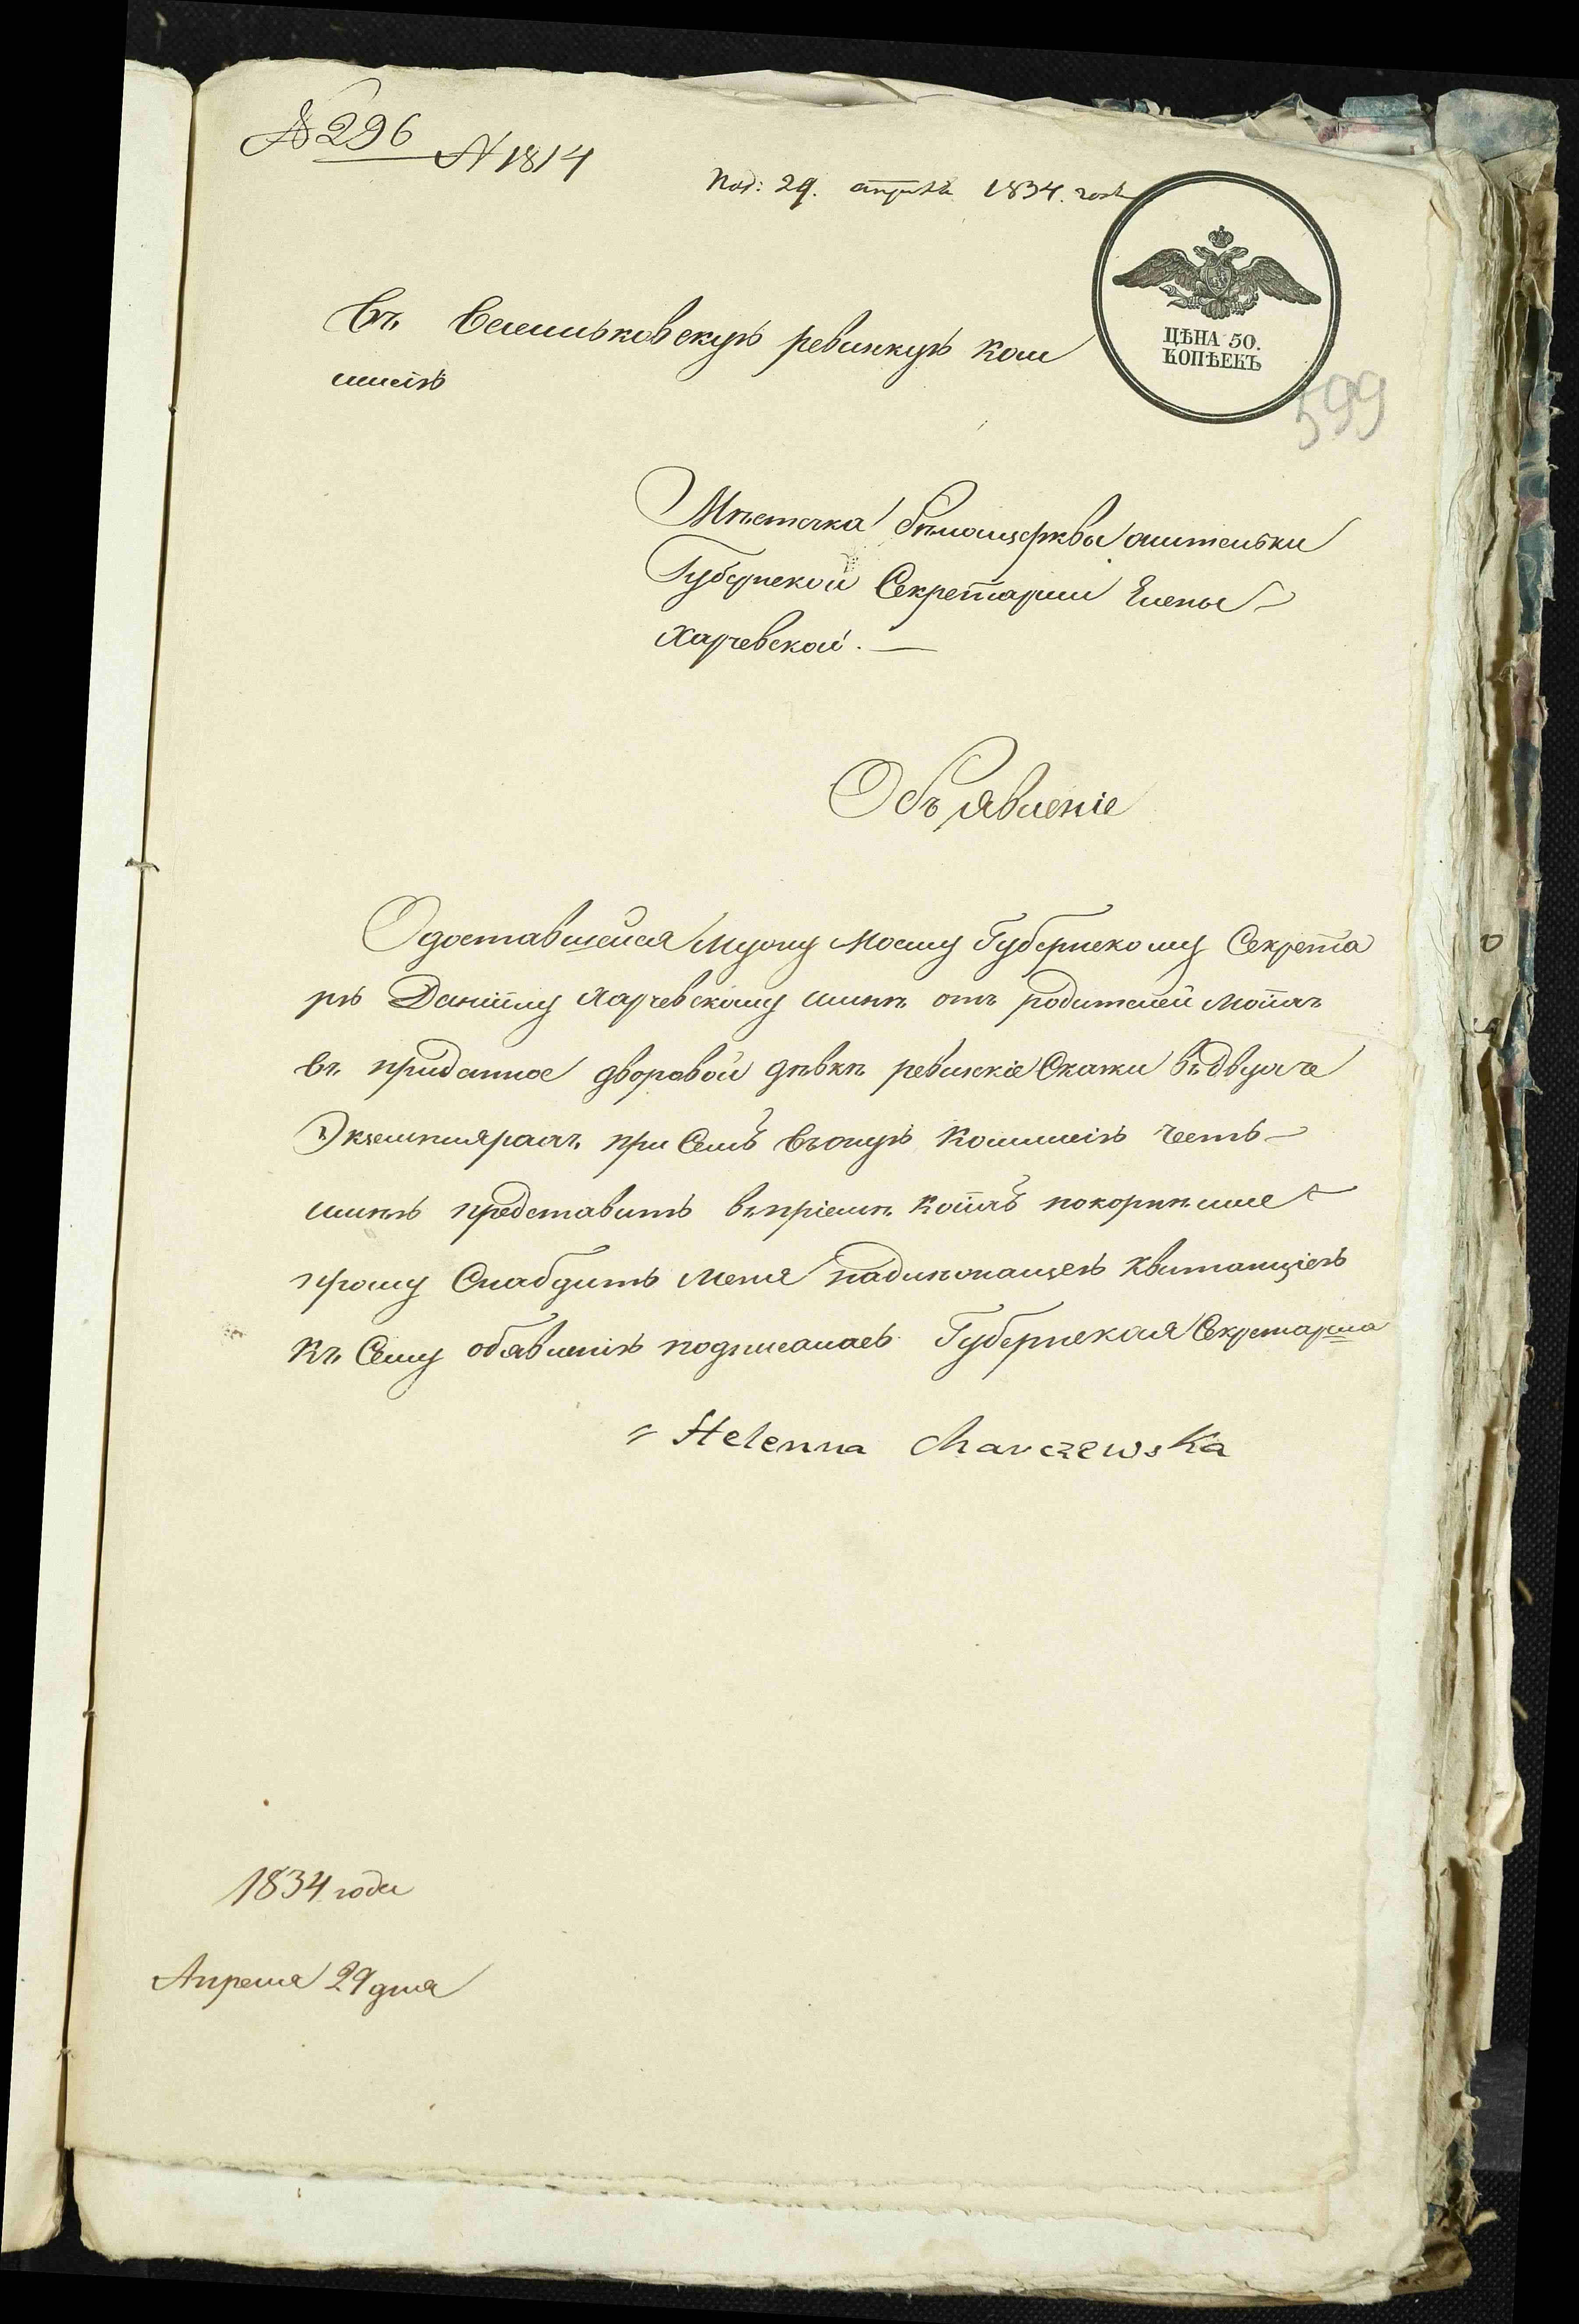 № 296
N 1814
Под: 29. апреля 1834. года
ЦѢНА 50.
КОПѢЕКЪ
599
Въ Васильковскую ревискую ком
мисію
Мѣстечка Бѣлоцерквы жительки
Губернской Секретарши Елены
Харчевской. —
Объявленіе
О доставшейся мужу моему Губернскому Секрета
рю Данiилу Харчевскому мнѣ отъ родителей моихъ
въ приданное дворовой дѣвкѣ ревиские Скаски въ двухъ
Экземплярахъ при Семъ въ оную Коммисію честь
имѣю представить въ пріемѣ коихъ покорнѣише
прошу Снабдить меня надлежащею квитанціею
Къ Сему объявленію подписалась Губернская Секретарша
Helenna Charczewska
1834 года
Апреля 29 дня